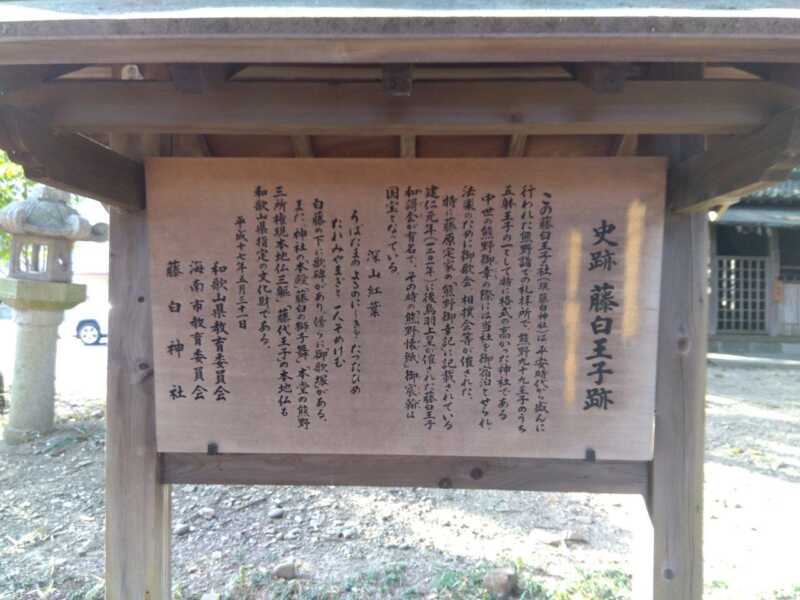 史跡 藤白王子跡
この藤白王子社(現 藤白神社)は、平安時代から盛んに
行われた熊野詣での礼拝所で、熊野九十九王子のうち
五躰王子の一として特に格式の高かった神社である
中世の熊野御幸の際には当社を御宿泊とせられ、
法楽のために御歌会 相撲会等が催された。
特に藤原定家の「熊野御幸記」に記載されている
建仁元年(一二〇一年)に後鳥羽上皇が催された藤白王子
和謌会が有名で、その時の「熊野懐紙」御宸翰は
国宝となっている。
深山紅葉
うばたまのよるのにしきを たつたひめ
たれみやまぎと 一人そめけむ
白藤の下に歌碑があり、傍らに御歌塚がある。
また、神社の本殿「藤白の獅子舞」本堂の熊野
三所権現本地仏三躯「藤代王子の本地仏も
和歌山県指定の文化財である。
平成十七年五月三十一日
和歌山県教育委員会
海南市教育委員会
藤白神社